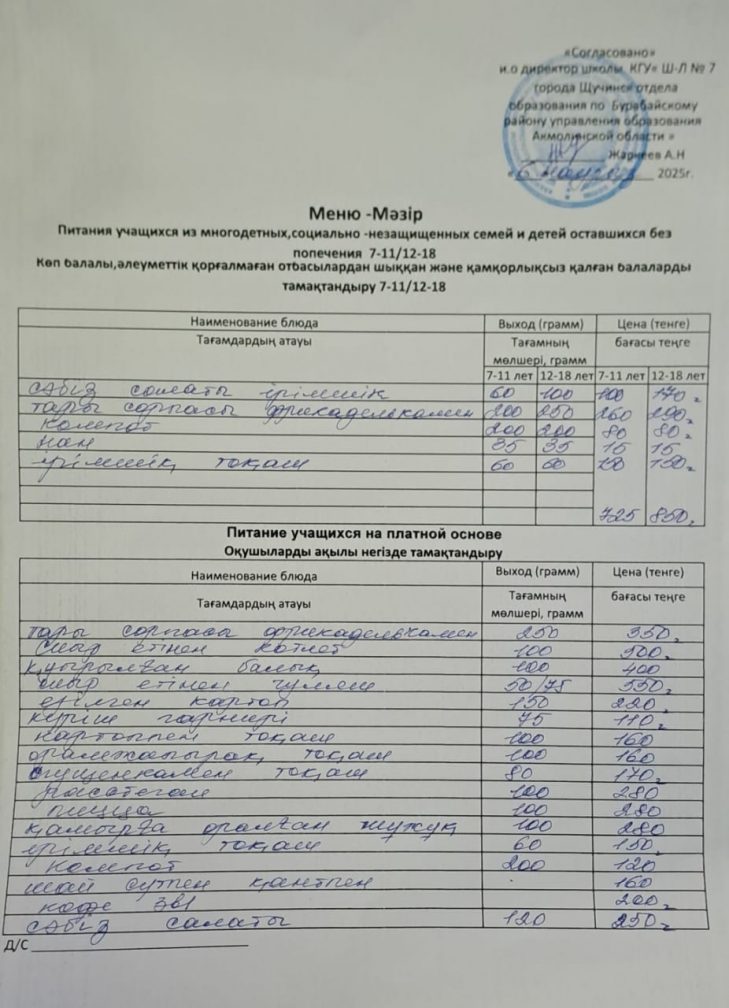 «Согласовано»
и.о директор школы КГУ« Ш-Л № 7
города Щучинск отдела
образования по Бурабайскому
району управления образования
Акмолинской области »
Жарнеев А.Н
« 6 2025г.
Меню -Мәзір
Питания учащихся из многодетных,социально -незащищенных семей и детей оставшихся без
попечения 7-11/12-18
Көп балалы,әлеуметтік қорғалмаған отбасылардан шыққан және қамқорлықсыз қалған балаларды
тамақтандыру 7-11/12-18
Наименование блюда Выход (грамм) Цена (тенге)
Тағамдардың атауы Тағамның мөлшері, грамм бағасы теңге
7-11 лет 12-18 лет 7-11 лет 12-18 лет
сәбіз салаты ірімшік 60 100 170
тары сорпасы фрикаделькамен 200 250 260
компот 200 200 80 80
нан 35 35 15 15
ірімшік тоқаш 60 60 150
725 850
Питание учащихся на платной основе
Оқушыларды ақылы негізде тамақтандыру
Наименование блюда Выход (грамм) Цена (тенге)
Тағамдардың атауы Тағамның мөлшері, грамм бағасы теңге
тары сорпасы фрикаделькамен 250 350
сиыр етінен котлет 100 500
қуырылған балық 100 400
сиыр етінен гуляш 50/75 550
езілген картоп 150 220
күріш гарнирі 75 110
картоппен тоқаш 100 160
орамжапырақ тоқаш 100 160
сгущенкамен тоқаш 80 170
100 280
пицца 100 280
қамырға оралған шұжұқ 100 280
ірімшік тоқаш 60 150
компот 200 120
шай сүтпен қантпен 160
кофе 3в1 200
сәбіз салаты 120 250
Д/С